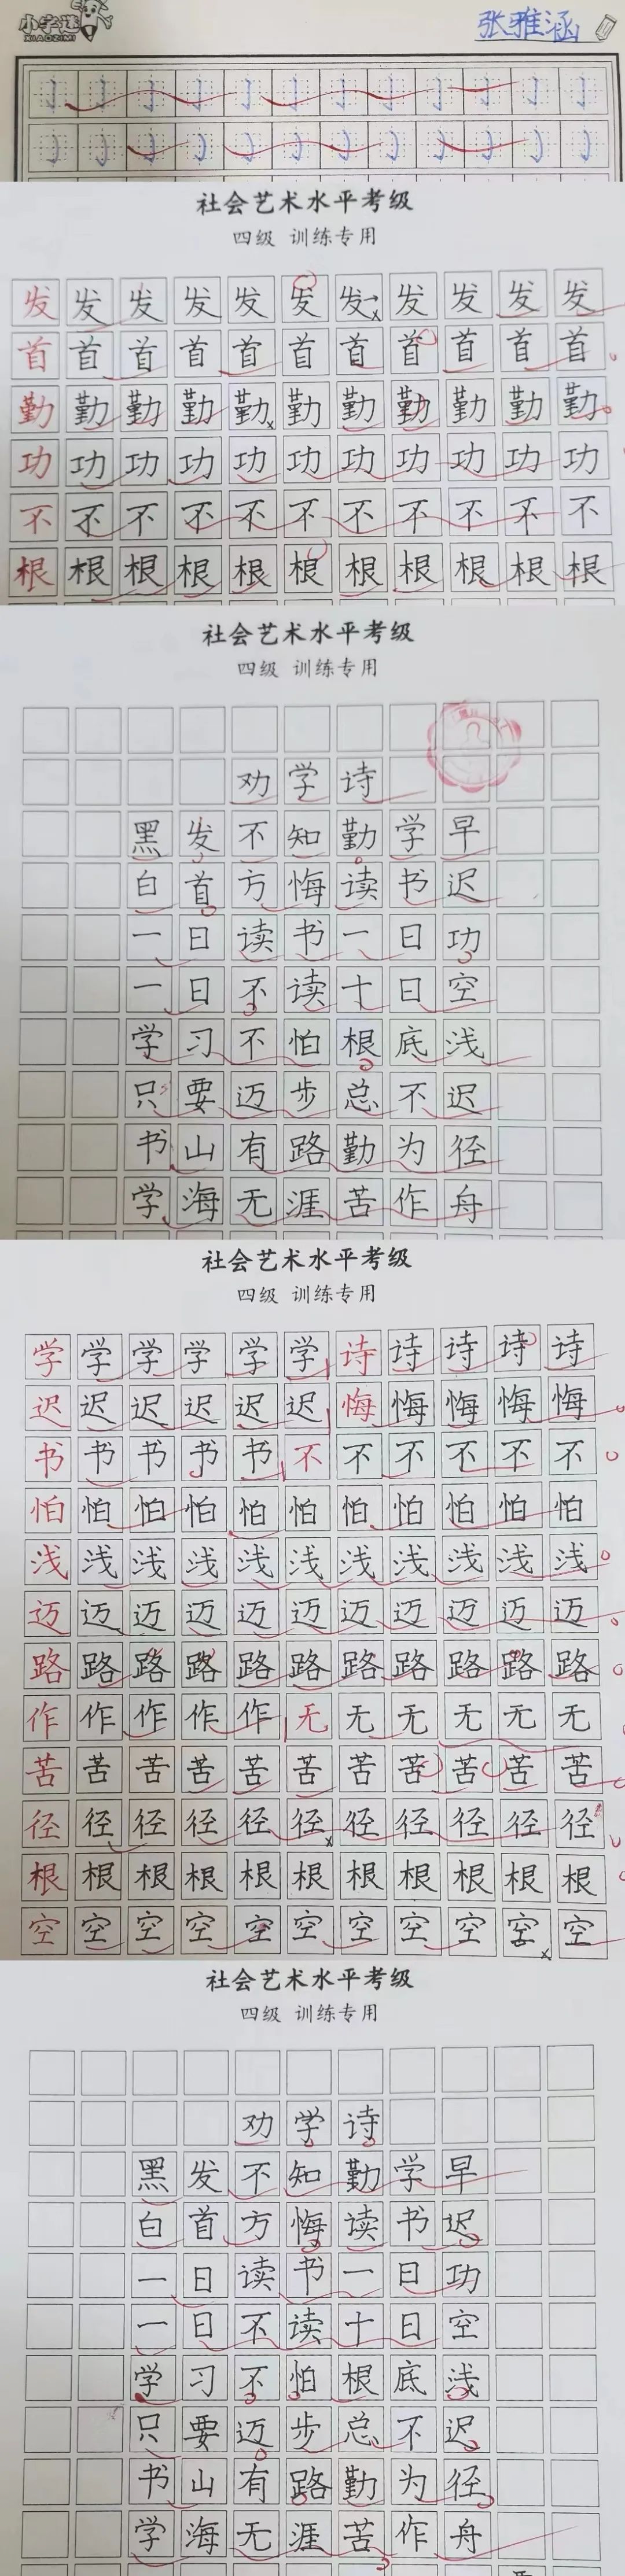 小字迷
XIAOZIMI
张雅涵
社会艺术水平考级
四级 训练专用
发发发发发发发发发发发
首首首首首首首首首首首
勤勤勤勤勤勤勤勤勤勤勤
功功功功功功功功功功功
不不不不不不不不不不不
根根根根根根根根根根根
社会艺术水平考级
四级 训练专用
劝学诗
黑发不知勤学早
白首方悔读书迟
一日读书一日功
一日不读十日空
学习不怕根底浅
只要迈步总不迟
书山有路勤为径
学海无涯苦作舟
社会艺术水平考级
四级 训练专用
学学学学学学诗诗诗诗诗
迟迟迟迟迟迟悔悔悔悔悔
书书书书书不不不不不不
怕怕怕怕怕怕怕怕怕怕怕
浅浅浅浅浅浅浅浅浅浅浅
迈迈迈迈迈迈迈迈迈迈迈
路路路路路路路路路路路
作作作作作无无无无无无
苦苦苦苦苦苦苦苦苦苦苦
径径径径径径径径径径径
根根根根根根根根根根根
空空空空空空空空空空空
社会艺术水平考级
四级 训练专用
劝学诗
黑发不知勤学早
白首方悔读书迟
一日读书一日功
一日不读十日空
学习不怕根底浅
只要迈步总不迟
书山有路勤为径
学海无涯苦作舟